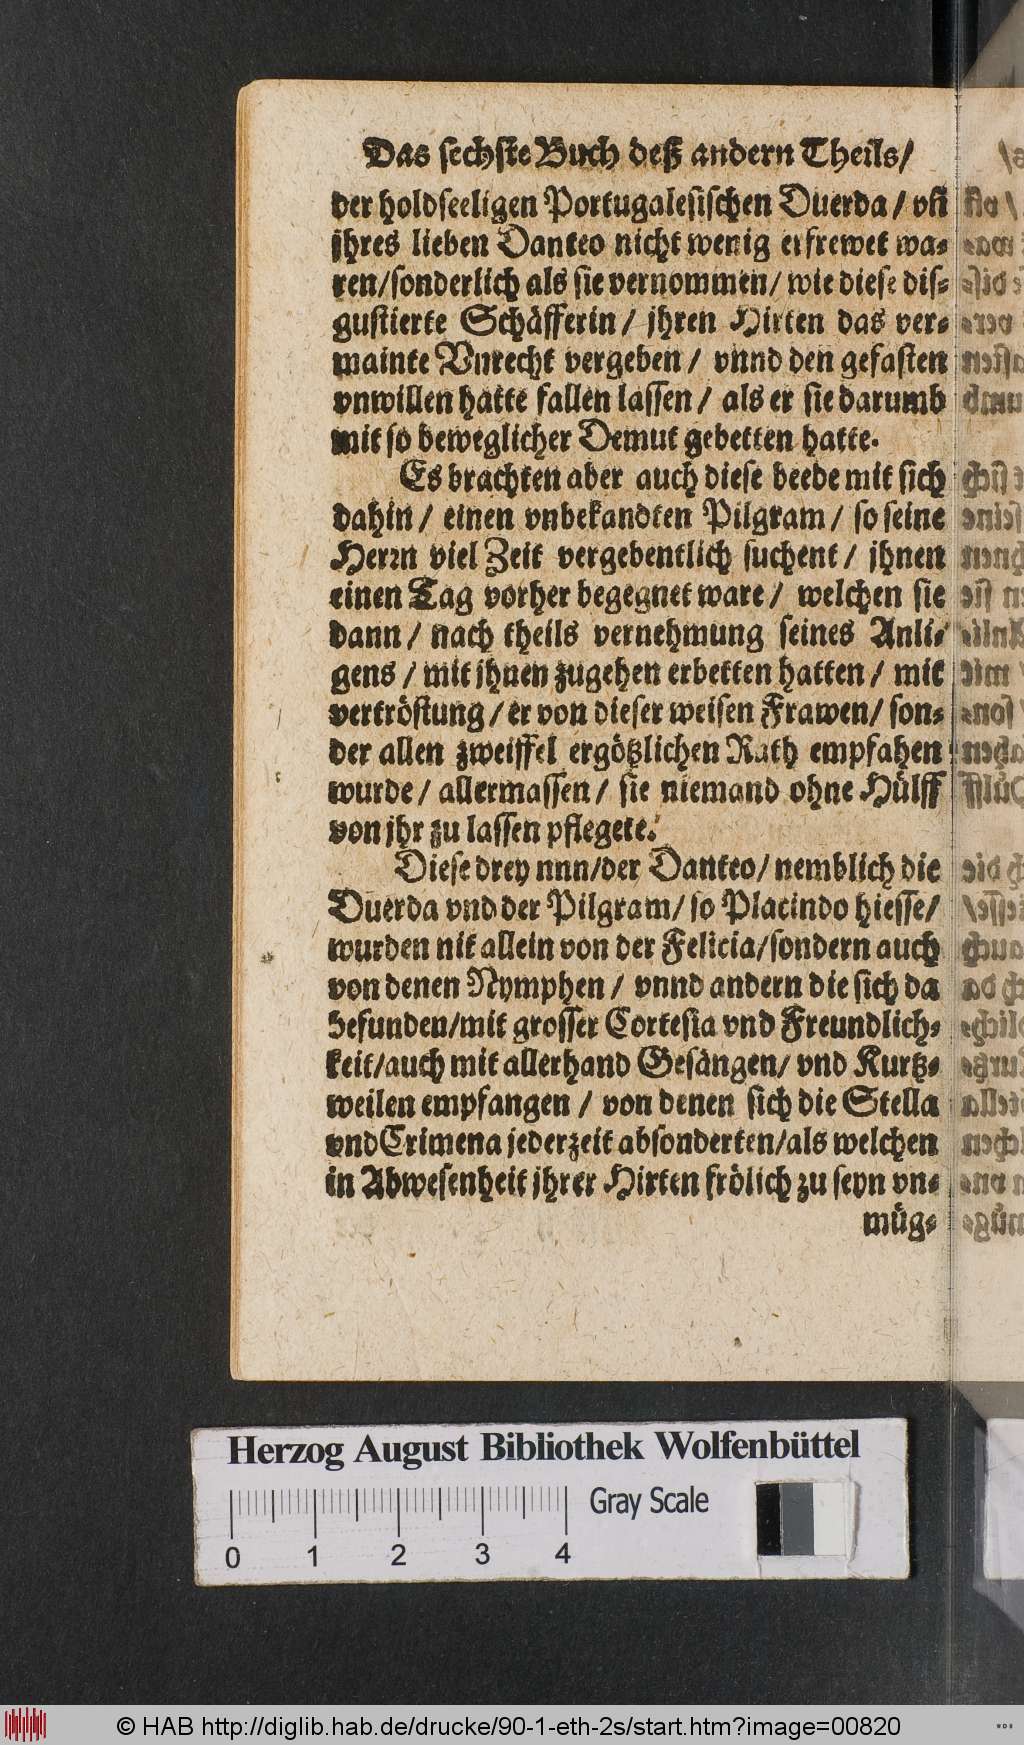 Das sechste Buch deß andern Theils/
der holdseeligen Portugalesischen Duerda / vñ
jhres lieben Danteo nicht wenig erfrewet wa-
ren/sonderlich als sie vernommen/ wie diese dis-
gustierte Schäfferin/ jhren Hirten das ver-
mainte Vnrecht vergeben / vnnd den gefasten
vnwillen hatte fallen lassen / als er sie darumb
mit so beweglicher Demut gebetten hatte.
Es brachten aber auch diese beede mit sich
dahin / einen vnbekandten Pilgram / so seine
Herrn viel Zeit vergebentlich suchent / jhnen
einen Tag vorher begegnet ware / welchen sie
dann / nach theils vernehmung seines Anli-
gens / mit jhnen zugehen erbetten hatten / mit
vertröstung / er von dieser weisen Frawen/ son-
der allen zweiffel ergötzlichen Rath empfahen
wurde / allermassen / sie niemand ohne Hülff
von jhr zu lassen pflegete.
Diese drey nnn/der Danteo/ nemblich die
Duerda vnd der Pilgram/ so Placindo hiesse/
wurden nit allein von der Felicia/sondern auch
von denen Nymphen / vnnd andern die sich da
befunden/mit grosser Cortesia vnd Freundlich-
keit/auch mit allerhand Gesängen/ vnd Kurtz-
weilen empfangen / von denen sich die Stella
vnd Crimena jederzeit absonderten/als welchen
in Abwesenheit jhrer Hirten frölich zu seyn vn-
müg-
Herzog August Bibliothek Wolfenbüttel
Gray Scale
0 1 2 3 4
© HAB http://diglib.hab.de/drucke/90-1-eth-2s/start.htm?image=00820